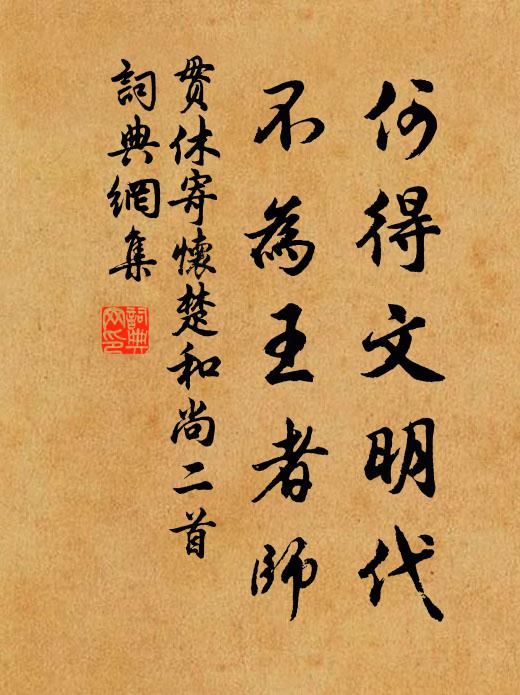 何得文明代
不為王者師
貫休寄懷楚和尚二首
詞典網集
詞典網印